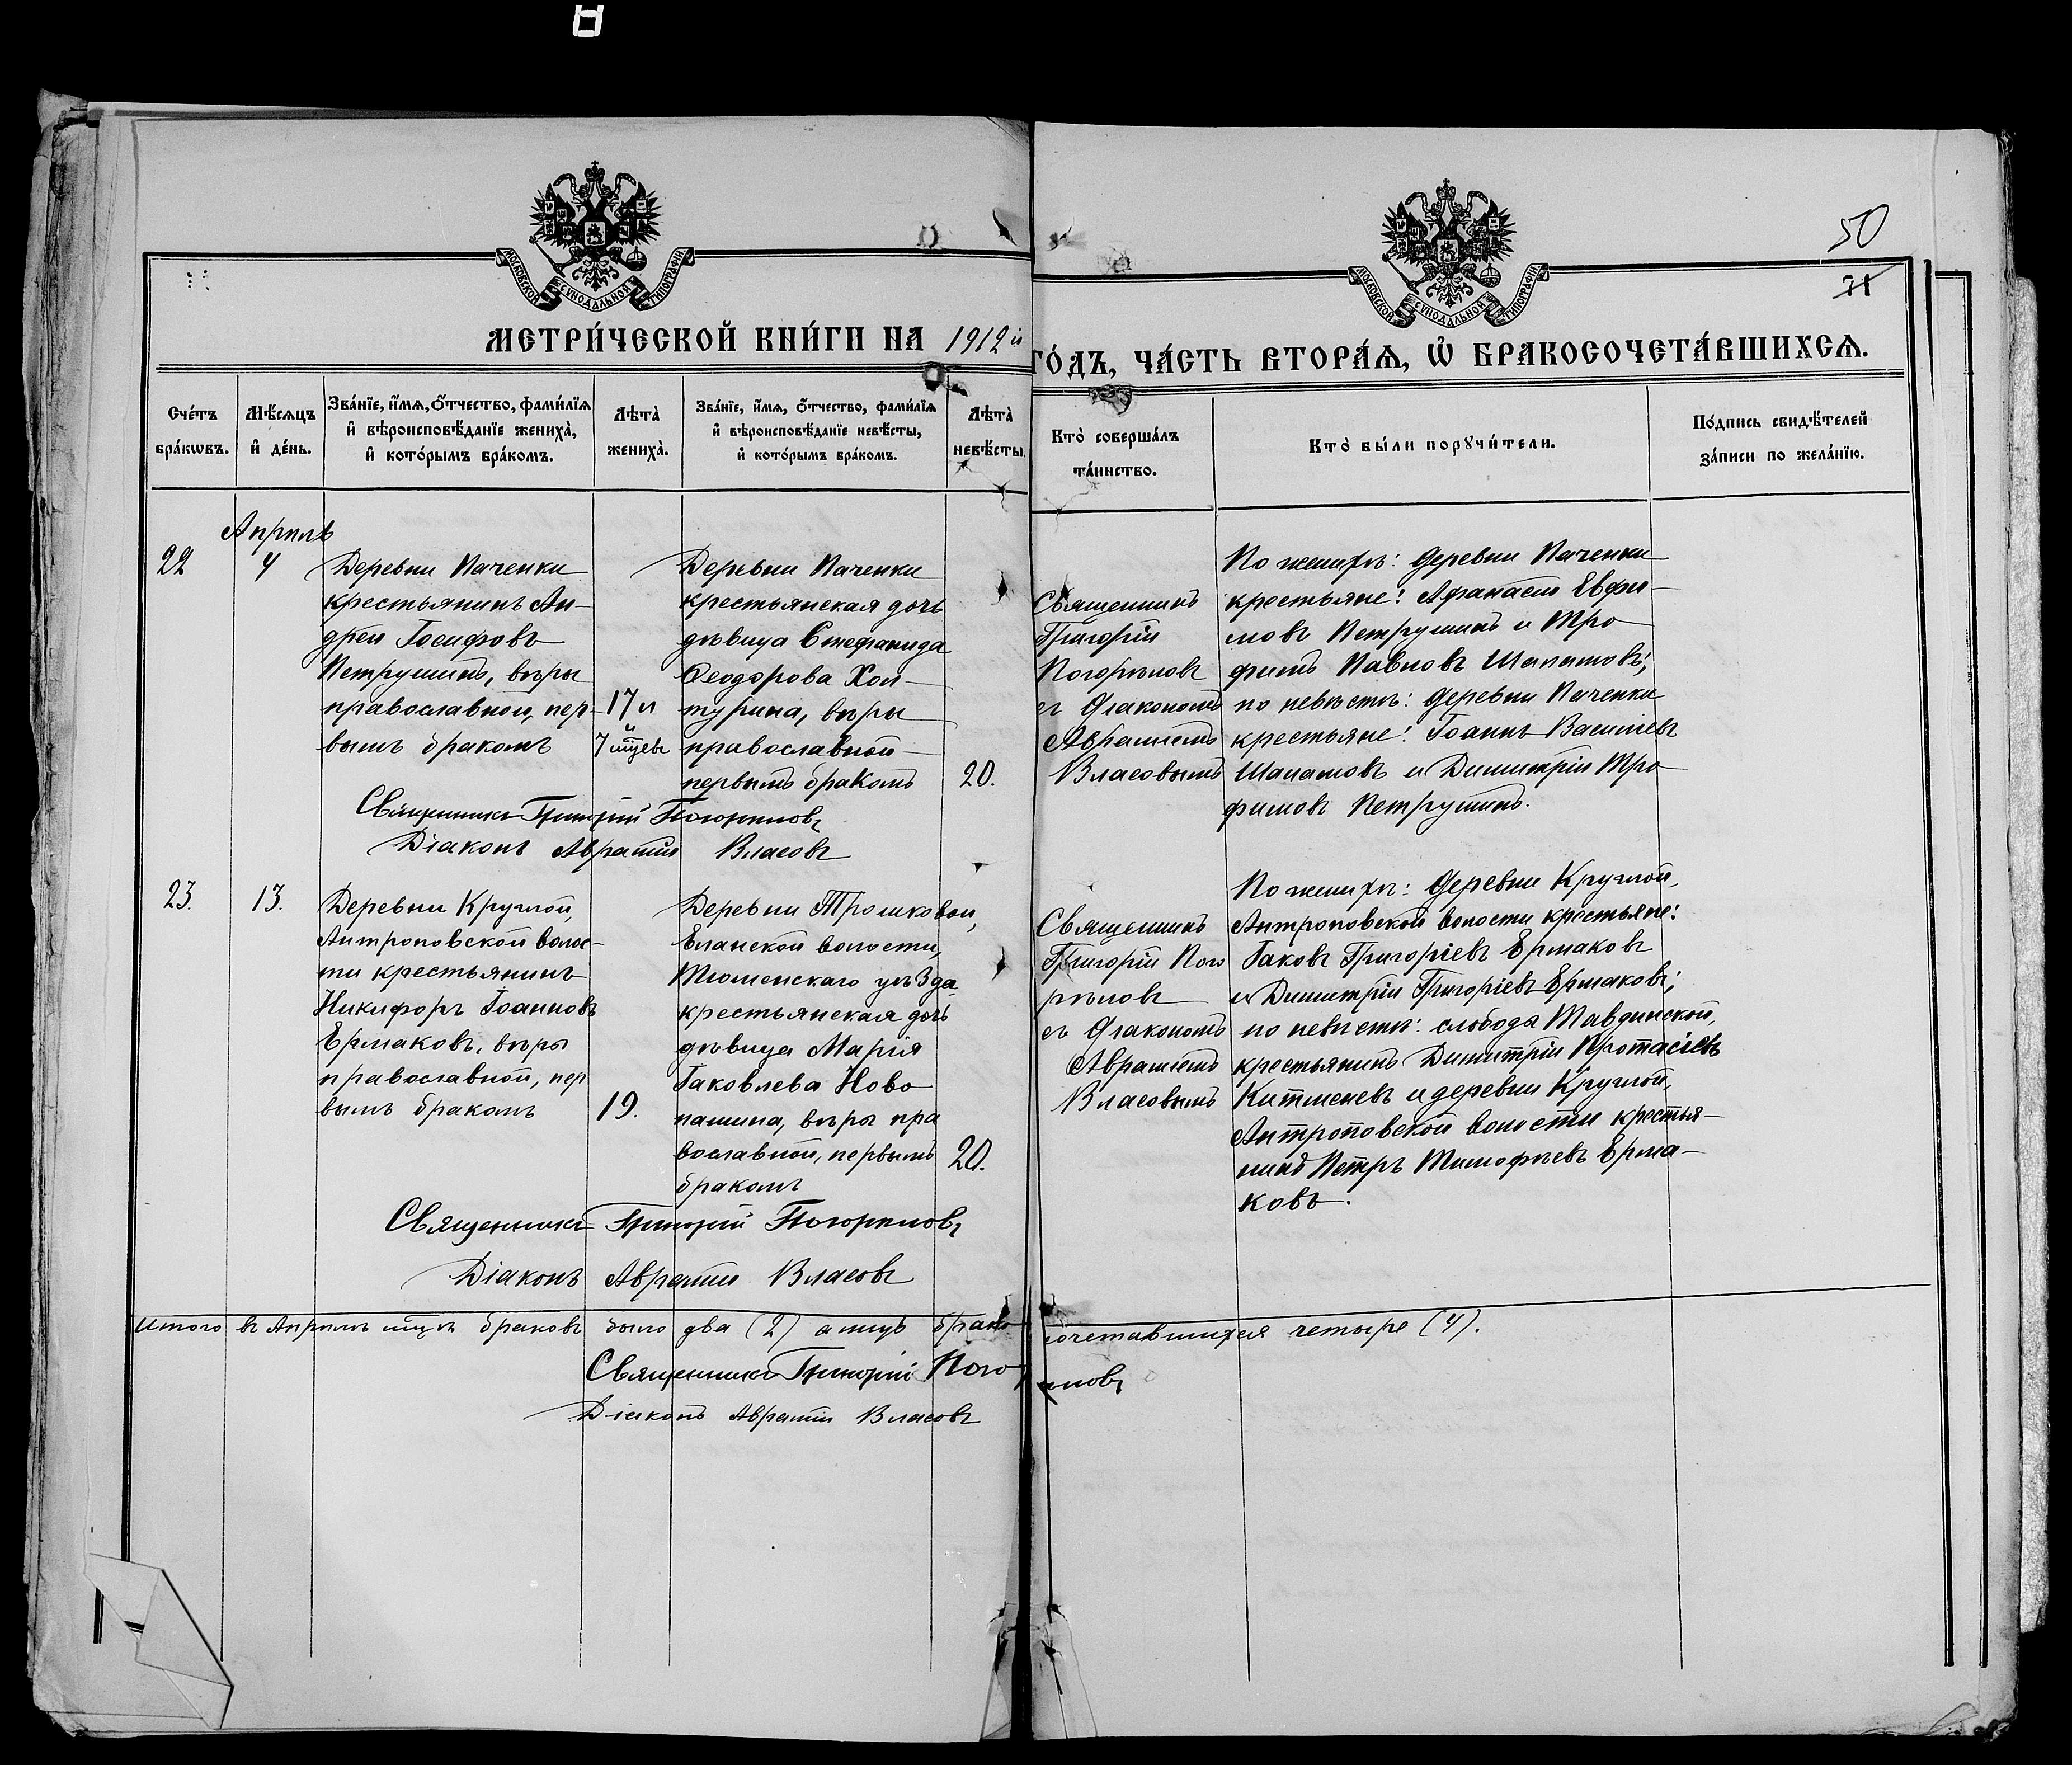 50
71
МОСКОВСКОЙ СѴНОДАЛЬНОЙ ТИПОГРАФІИ
МОСКОВСКОЙ СѴНОДАЛЬНОЙ ТИПОГРАФІИ
МЕТРИ́ЧЕСКОЙ КНИ́ГИ НА 1912 й
ГО́ДЪ, ЧА́СТЬ ВТОРА́Ѧ, Ѡ БРАКОСОЧЕТА́ВШИХСѦ.
Сче́тъ
бра́кѡвъ.
Мѣ́сѧцъ
и҆ де́нь.
Зва́нїе, и҆́мѧ, о҆́тчество, фами́лїѧ
и҆ вѣроисповѣ́данїе жениха̀,
и҆ кото́рымъ бра́комъ.
Лѣта̀
жениха̀.
Зва́нїе, и҆́мѧ, о҆́тчество, фами́лїѧ
и҆ вѣроисповѣ́данїе невѣ́сты,
и҆ кото́рымъ бра́комъ.
Лѣта̀
невѣ́сты.
Кто̀ соверша́лъ
та́инство.
Кто̀ бы́ли порꙋчи́тели.
По́дпись свидѣ́телей
за́писи по жела́нїю.
Апрѣль
22
4
Деревни Паченки
крестьянинъ Ан-
дрей Іосифовъ
Петрушинъ, вѣры
православной, пер-
вымъ бракомъ
17 л
и
7 мцевъ
Деревни Паченки
крестьянская дочь
дѣвица Стефанида
Ѳеодорова Хол-
турина, вѣры
православной
первымъ бракомъ
20.
Священникъ
Григорій
Погорѣловъ
съ Діакономъ
Авраміемъ
Власовымъ
По женихѣ: деревни Паченки
крестьяне: Афанасій Евфи-
мовъ Петрушинъ и Тро
фимъ Павловъ Шаламовъ;
по невѣстѣ: деревни Паченки
крестьяне: Іоаннъ Васильевъ
Шаламовъ и Димитрій Тро-
фимовъ Петрушинъ.
Священникъ Григорій Погорѣловъ
Діаконъ Аврамій Власовъ
23.
13.
Деревни Круглой,
Антроповской волос-
ти крестьянинъ
Никифоръ Іоанновъ
Ермаковъ, вѣры
православной, пер
вымъ бракомъ
19.
Деревни Трошковой,
Еланской волости,
Тюменскаго уѣзда
крестьянская дочь
дѣвица Марія
Іаковлева Ново
пашина, вѣры пра
вославной, первымъ
бракомъ
20.
Священникъ
Григорій Пого
рѣловъ
съ Діакономъ
Авраміемъ
Власовымъ
По женихѣ: деревни Круглой,
Антроповской волости крестьяне:
Іаковъ Григоріевъ Ермаковъ
и Димитрій Григоріевъ Ермаковъ;
по невѣстѣ: слободы Тавдинской,
крестьянинъ Димитрій Протасіевъ
Китменевъ и деревни Круглой,
Антроповской волости крестья-
нинъ Петръ Тимофѣевъ Ерма-
ковъ.
Священникъ Григорій Погорѣловъ
Діаконъ Аврамій Власовъ
Итого въ Апрѣлѣ мцѣ браковъ было два (2) а лицъ брако сочетавшихся четыре (4).
Священникъ Григорій Погорѣловъ
Діаконъ Аврамій Власовъ